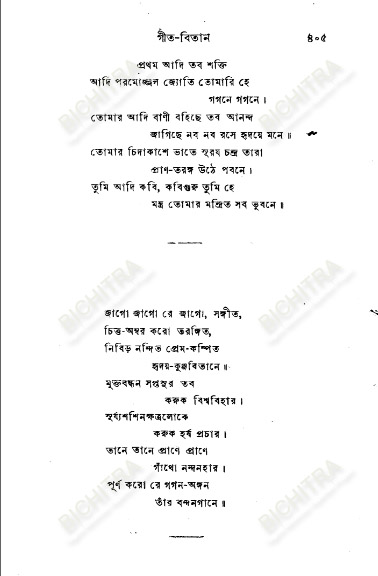 গীত-বিতান ৪০৫
প্রথম আদি তব শক্তি
আদি পরমোজ্জ্বল জ্যোতি তোমারি হে
গগনে গগনে।
তোমার আদি বাণী বহিছে তব আনন্দ
জাগিছে নব নব রসে হৃদয়ে মনে॥
তোমার চিদাকাশে ভাতে সূরয চন্দ্র তারা
প্রাণ-তরঙ্গ উঠে পবনে।
তুমি আদি কবি, কবিগুরু তুমি হে
মন্ত্র তোমার মন্দ্রিত সব ভুবনে॥
জাগো জাগো রে জাগো, সঙ্গীত,
চিত্ত-অম্বর করো তরঙ্গিত,
নিবিড় নন্দিত প্রেম-কম্পিত
হৃদয়-কুঞ্জবিতানে॥
মুক্তবন্ধন সপ্তসুর তব
করুক বিশ্ববিহার।
সূর্য্যশশিনক্ষত্রলোকে
করুক হর্ষ প্রচার।
তানে তানে প্রাণে প্রাণে
গাঁথো নন্দনহার।
পূর্ণ করো রে গগন-অঙ্গন
তাঁর বন্দনগানে॥
BICHITRA
BICHITRA
BICHITRA
BICHITRA
BICHITRA
BICHITRA